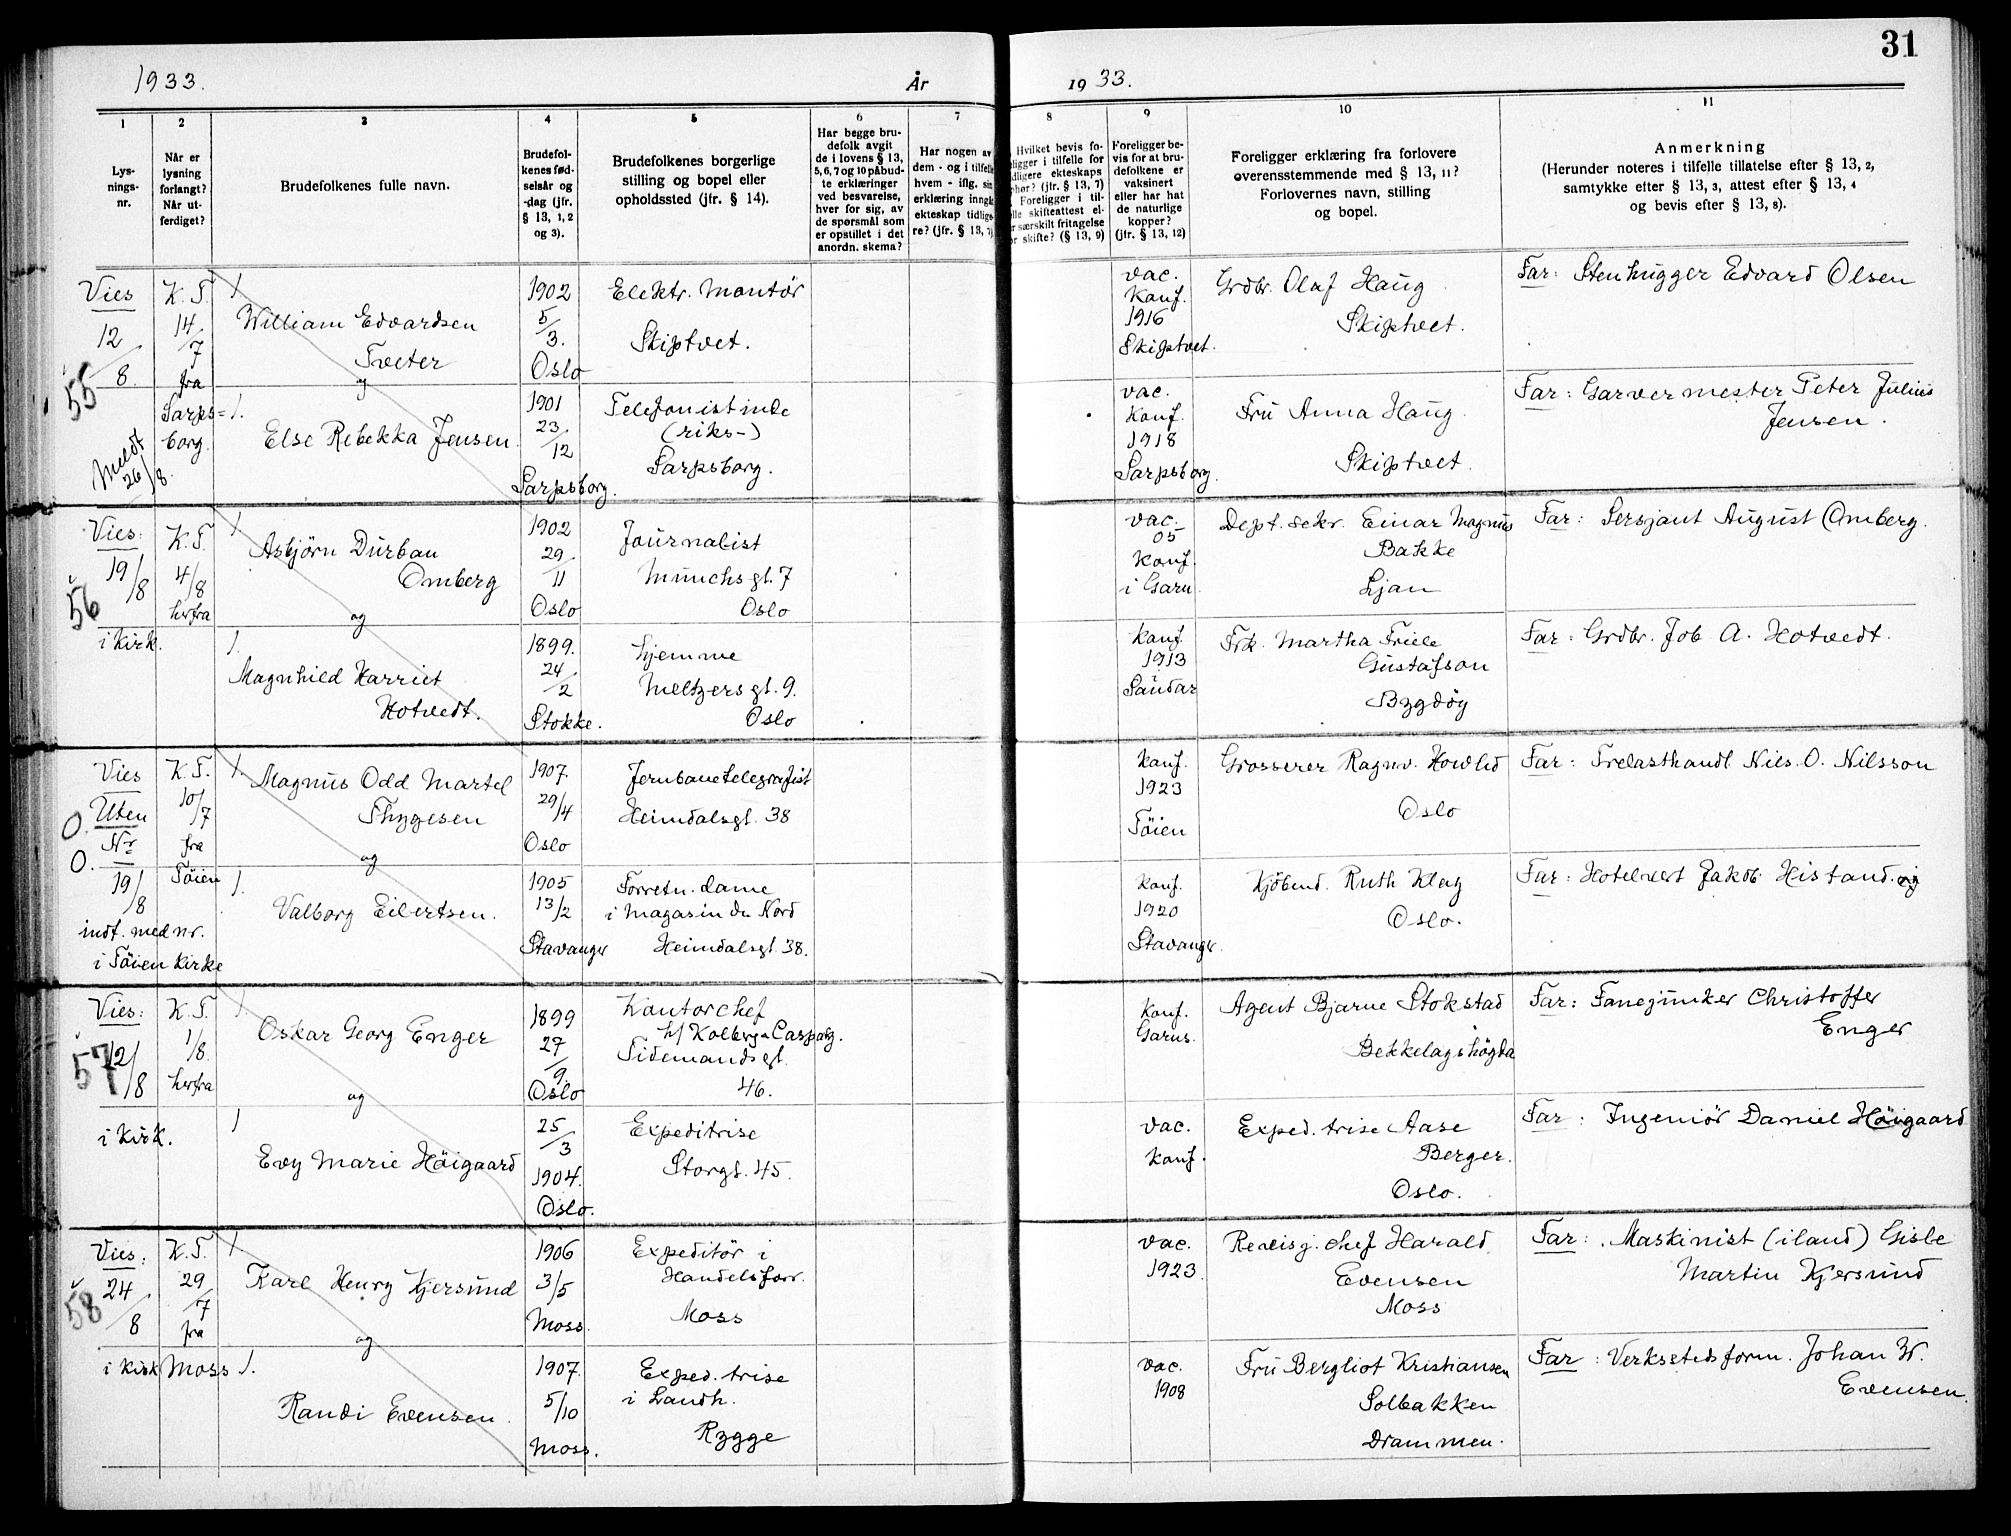 31
1933.
År
19 33.
1
2
3
4
5
6
7
8
9
10
11
Lys-
nings-
nr.
Når er
lysning
forlangt?
Når ut-
ferdiget?
Brudefolkenes fulle navn.
Brudefol-
kenes fød-
selsår og
-dag (jfr.
§ 13, 1, 2
og 3).
Brudefolkenes borgerlige
stilling og bopel eller
opholdssted (jfr. § 14).
Har begge bru-
defolk avgit
de i lovens § 13,
5, 6, 7 og 10 påbud-
te erklæringer
ved besvarelse,
hver for sig, av
de spørsmål som
er opstillet i det
anordn. skema?
Har nogen av
dem - og i tilfelle
hvem - iflg. sin
erklæring inngå
ekteskap tidlige
re? (jfr. § 13, 7)
Hvilket bevis fo-
ligger i tilfelle for
idligere ekteskaps
phør? (jfr. § 13, 7)
Foreligger i til-
elle skifteattest el-
r særskilt fritagelse
or skifte? (§ 13, 9)
Foreligger be-
vis for at bru-
defolkene er
vaksinert
eller har hat
de naturlige
kopper?
(jfr. § 13, 12)
Foreligger erklæring fra forlovere
overensstemmende med § 13, 11?
Forlovernes navn, stilling
og bopel.
Anmerkning
(Herunder noteres i tilfelle tillatelse efter § 13, 2,
samtykke efter § 13, 3, attest efter § 13, 4
og bevis efter § 13, 8).
55
Vies
12/8.
Meldt
26/8.
K. T.
14/7
fra
Sarps=
borg.
1.
William Edvardsen
Tveter
og
1902
5/3.
Oslo
Elektr. Montör
Skiptvet.
vac.
Konf.
1916
Skiptvet.
Grdbr. Olaf Haug
Skiptvet.
Far: Stenhugger Edvard Olsen
1.
Else Rebekka Jensen.
1901
23/12
Sarpsborg.
Telefonistinde
(riks-)
Sarpsborg.
vac.
Konf.
1918
Sarpsborg.
Fru Anna Haug
Skiptvet.
Far: Garvermester Peter Julius
Jensen.
56
Vies:
19/8
i kirk.
K. T.
4/8
herfra
1
Asbjörn Durban
Omberg
og
1902
29/11
Oslo
Journalist
Munchs gt. 7
Oslo
vac.
05
Konf.
i Garn.
Dept. sekr. Einar Magnus
Bakke
Ljan
Far: Sersjant August Omberg.
1.
Magnhild Harriet
Hotvedt.
1899.
24/2
Stokke.
hjemme
Meltzers gt. 9.
Oslo
Konf.
1913
Sandar
Frk. Martha Friele
Gustafson
Bygdöy
Far: Grdbr. Job A. Hotvedt.
O.
O.
Vies
Uten
Nr
19/8
indf. med nr.
i Töien kirke
K. T.
10/7
fra
Töien
1.
Magnus Odd Martel
Thygesen
og
1907.
29/4
Oslo
Jernbanetelegrafist
Heimdalsgt. 38
Konf.
1923
Töien
Grosserer Ragnv. Howlid
Oslo
Far: Trelasthandl. Nils. O. Nilsson
1.
Valborg Eilertsen.
1905
13/2
Stavanger
Forretn. dame
i Magasin du Nord
Heimdalsgt. 38.
Konf.
1920
Stavanger.
Kjöbmd. Ruth Klay
Oslo.
Far: Hotelvert Jakob Histand.
57
Vies:
12/8
i kirk.
K. T.
1/8.
herfra
1
Oskar Georg Enger
og
1899
27/9.
Oslo
Kontorchef
h/ Kolberg Casparg.
Tidemandsgt.
46.
Konf.
Garns.
Agent Bjarne Stokstad
Bekkelagshögda
Far: Fanejunker Christoffer
Enger
1
Evy Marie Höigaard
25/3
1904.
Oslo.
Expeditrise
Storgt. 45.
vac.
Konf.
Exped. trise Aase
Berger.
Oslo.
Far: Ingeniör Daniel Höigaard
58
Vies:
24/8
i kirk
K. T.
29/7
fra
Moss
1
Karl Henry Kjersund
og
1906
3/5
Moss.
Expeditör i
Handelsforr.
Moss
vac.
1923.
Revisj. chef Harald
Evensen
Moss
Far: Maskinist (iland) Gisle
Martin Kjersund
1.
Randi Evensen.
1907.
5/10
Moss.
Exped. trise
i Landh.
Rygge
vac.
1908
Fru Bergliot Kristiansen
Solbakken
Drammen.
Far: Verkstedsform. Johan W.
Evensen.